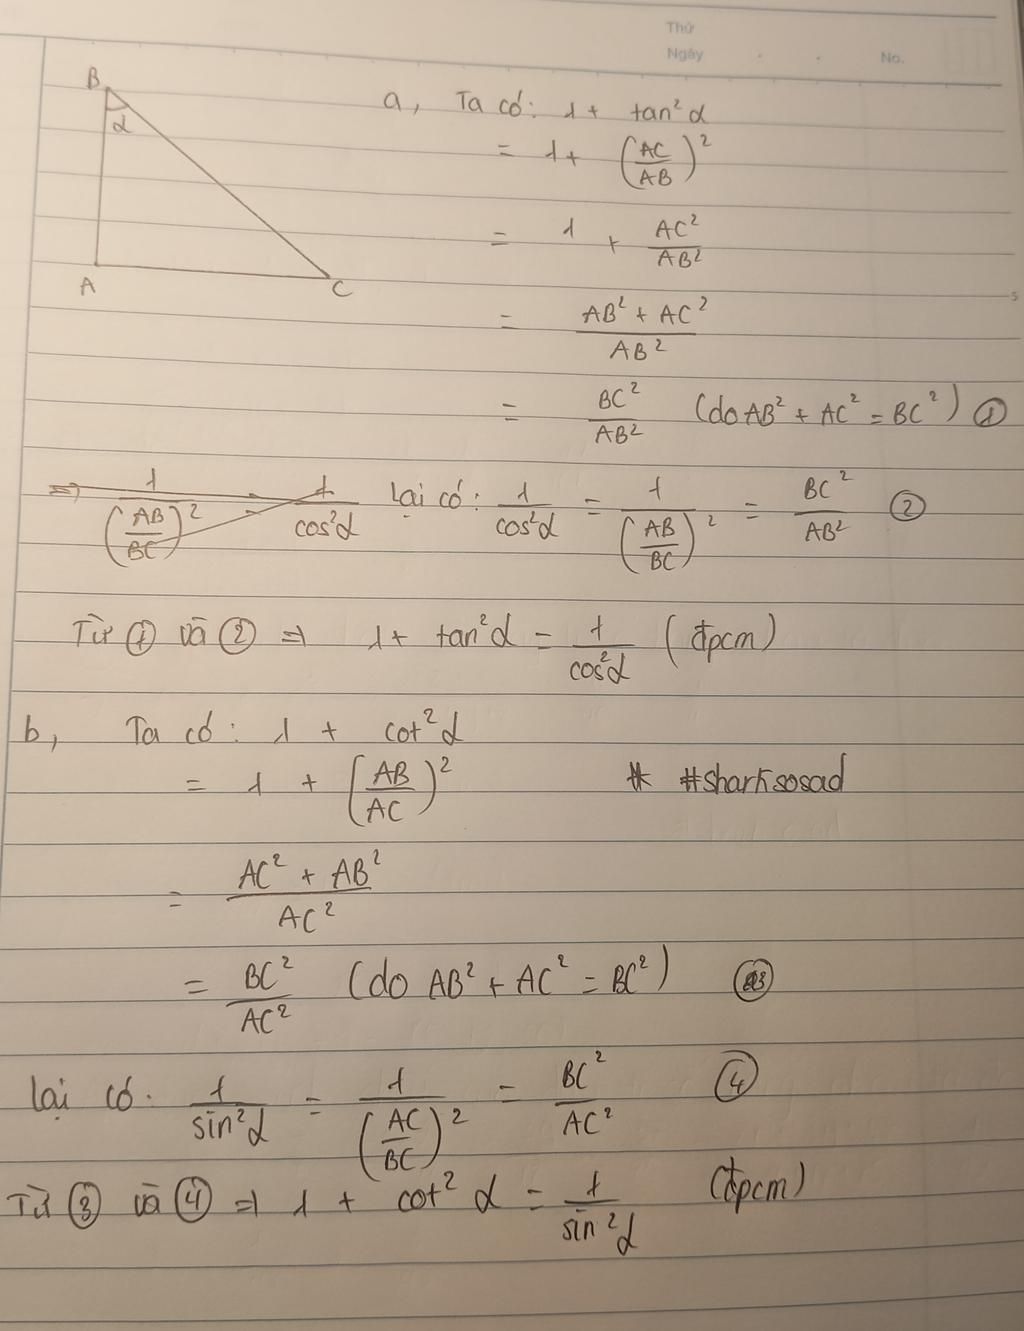 Thứ
Ngày . . No.
B
α
A
C
a, Ta có: 1 + tan²α
= 1 + (AC/AB)²
= 1 + AC²/AB²
= (AB² + AC²)/AB²
= BC²/AB² (do AB² + AC² = BC²) ①
⇒ 1/(AB/BC)² = 1/cos²α Lại có: 1/cos²α = 1/(AB/BC)² = BC²/AB² ②
Từ ① và ② ⇒ 1 + tan²α = 1/cos²α (đpcm)
b, Ta có: 1 + cot²α
= 1 + (AB/AC)²
#sharksosad
= (AC² + AB²)/AC²
= BC²/AC² (do AB² + AC² = BC²) ③
Lại có: 1/sin²α = 1/(AC/BC)² = BC²/AC² ④
Từ ③ và ④ ⇒ 1 + cot²α = 1/sin²α (đpcm)